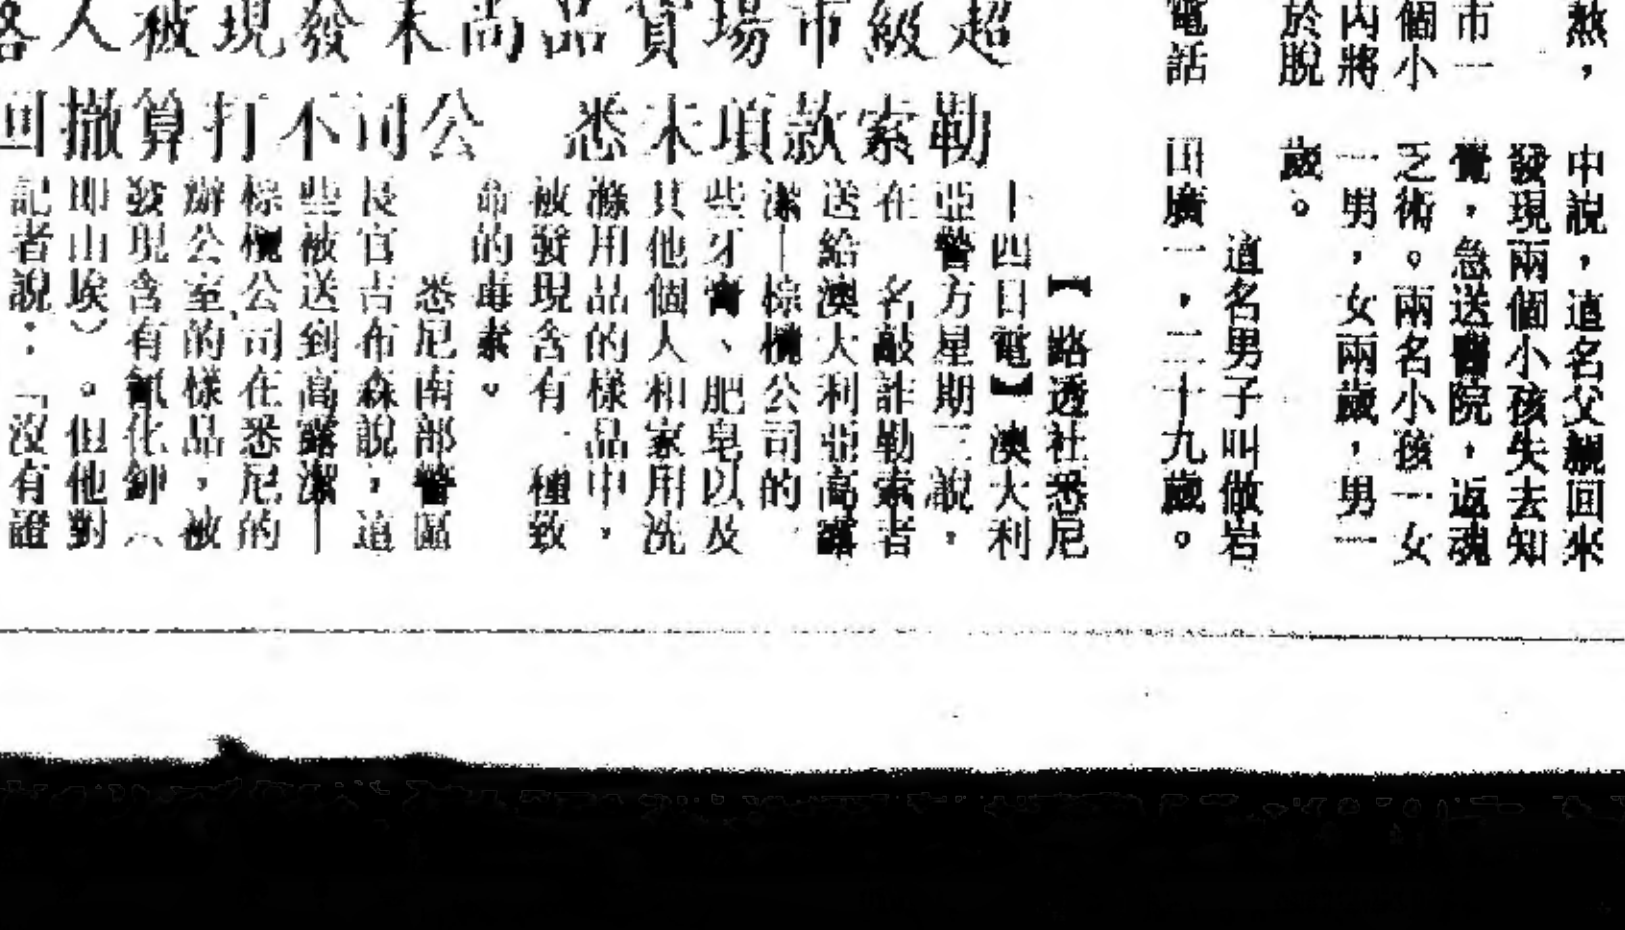 熬，
中說，這名父親回來
發現兩個小孩失去知
市一
覺，急送醫院，返魂
個小
乏術。兩名小孩一女
內將
一男，女兩歲，男一
於脫
歲。
這名男子叫做岩
電話
田廣一，二十九歲。
超級市場貨品尚未發現被人
勒索款項未悉　公司不打算撤回
【路透社悉尼
十四日電】澳大利
亞警方星期三說，
在　名敲詐勒索者
送給澳大利亞高露
潔—棕欖公司的
些牙膏、肥皂以及
其他個人和家用洗
滌用品的樣品中，
被發現含有一種致
命的毒素。
悉尼南部警區
長官吉布森說，這
些被送到高露潔—
棕欖公司在悉尼的
辦公室的樣品，被
發現含有氰化鉀（
即山埃）。但他對
記者說：「沒有證